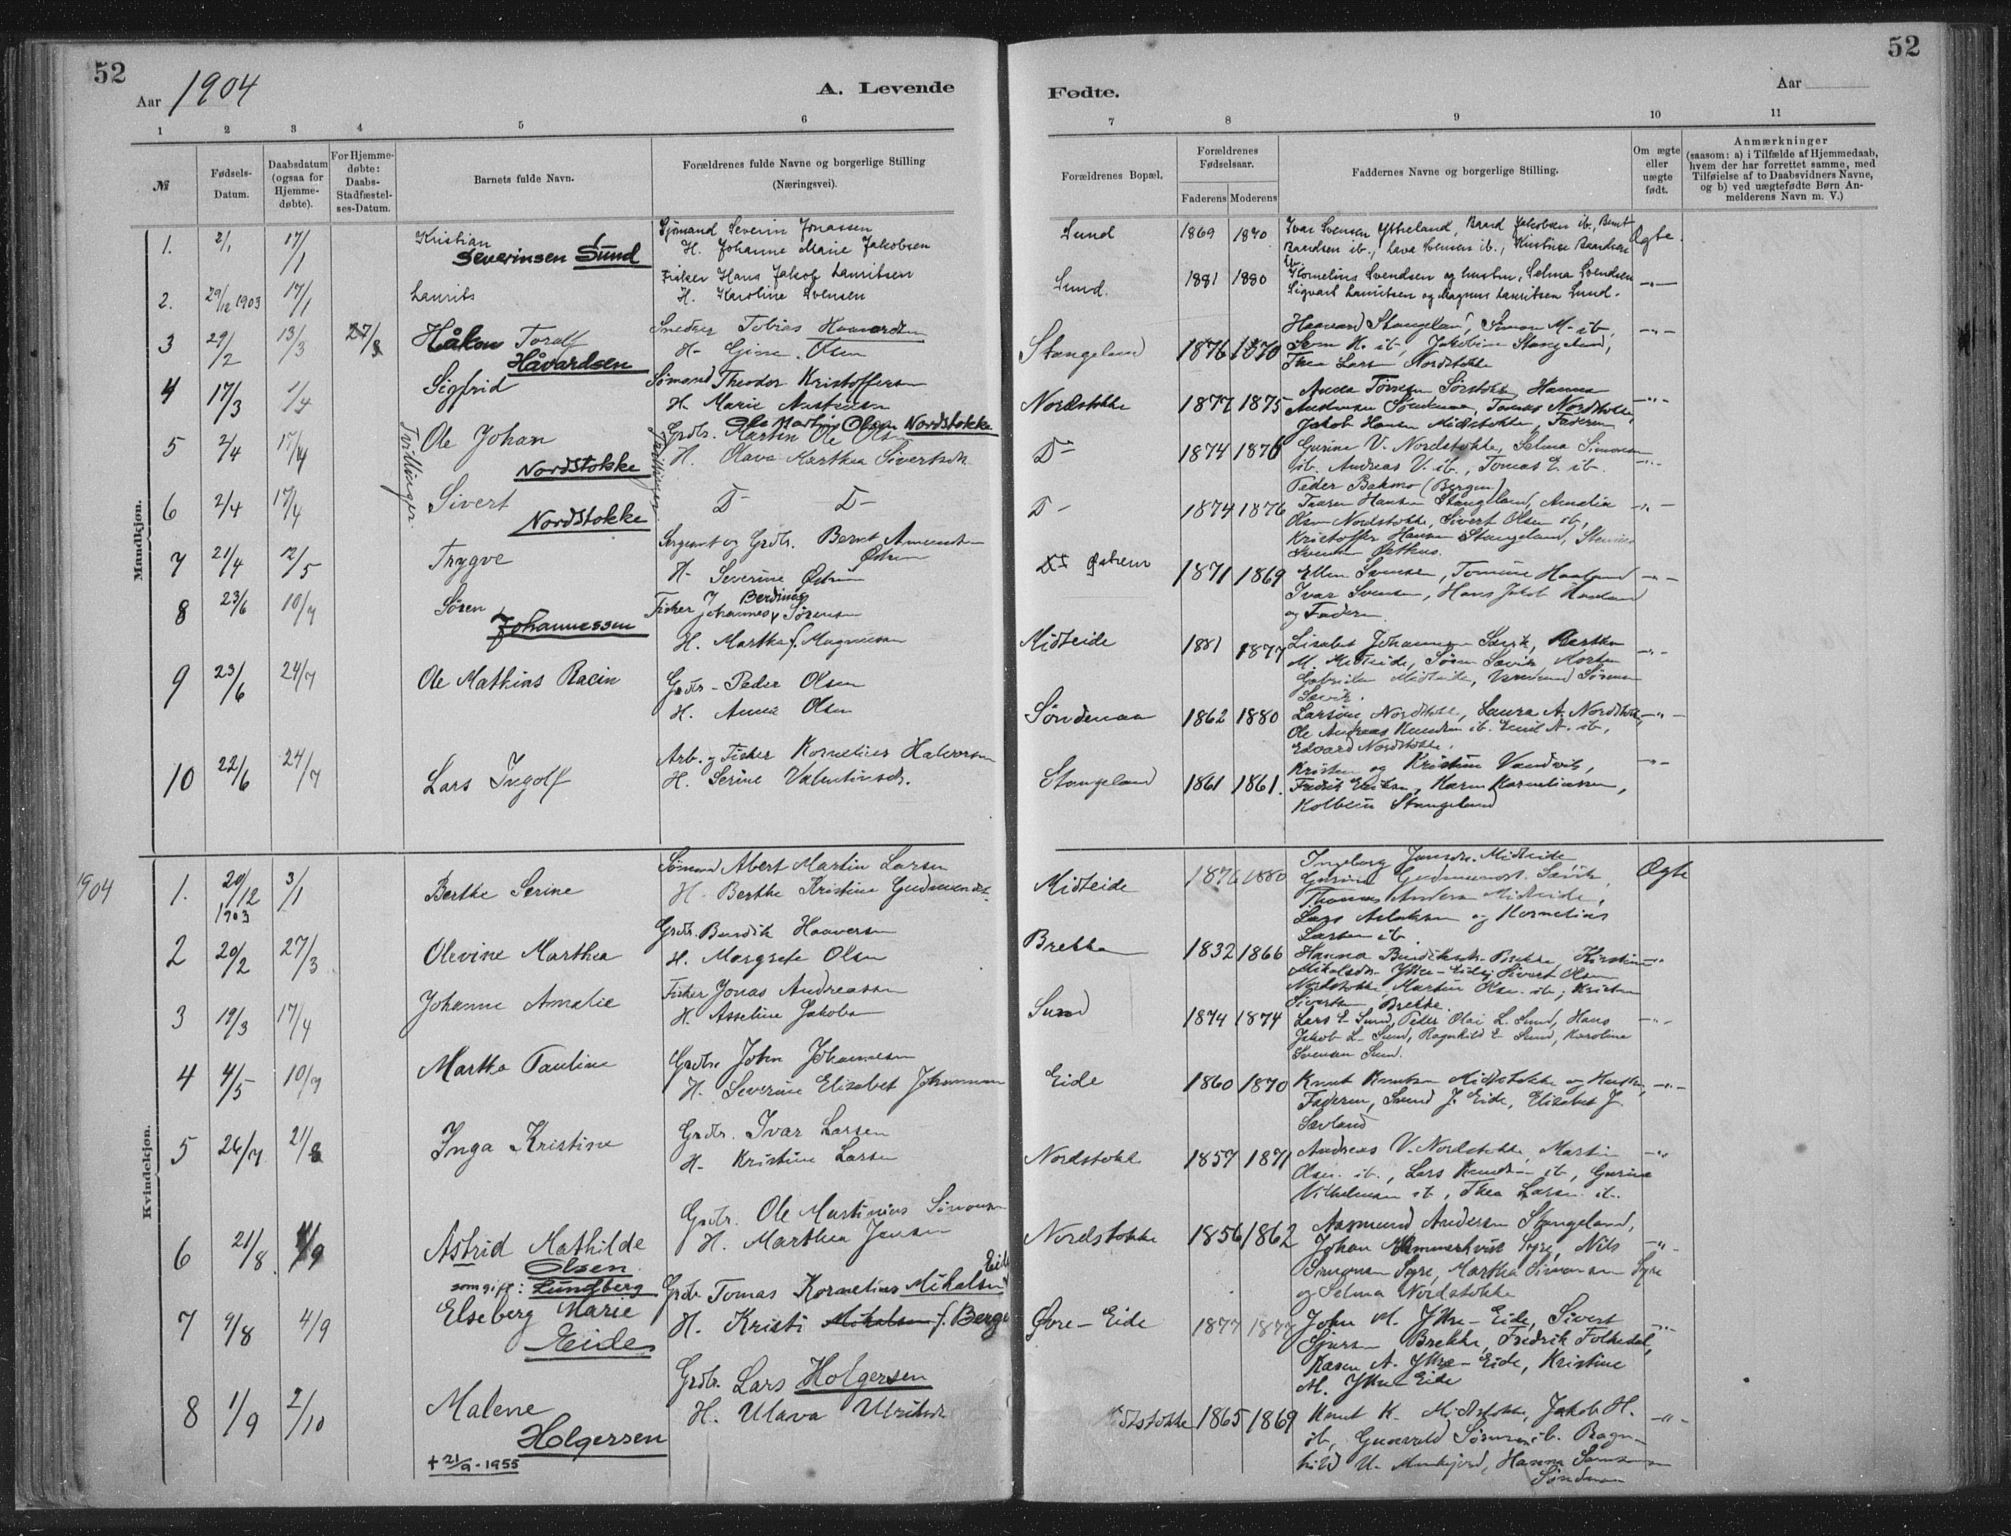 52
Aar 1904
A. Levende
1 2 3 4 5 6
№
Fødsels-Datum.
Daabsdatum (ogsaa for Hjemme-døbte).
For Hjemme-døbte: Daabs-Stadfæstel-ses-Datum.
Barnets fulde Navn.
Forældrenes fulde Navne og borgerlige Stilling (Næringsvei).
Mandkjøn.
1. 2/1 17/1 Kristian Severinsen Sund
Sjømand Severin Jonassen
H. Johanne Marie Jakobsen
2. 29/12 1903 17/1 Laurits
Fisker Hans Jakob Lauritsen
H. Karoline Svensen
3 29/2 13/3 27/3 Håkon Toralf Håvardsen
Snedker Tobias Haavardsen
H. Gine Olsen
4 17/3 1/4 Sigfrid
Sømand Theodor Kristoffersen
H. Marie
Tvillinger
5 2/4 17/4 Ole Johan Nordstokke
Ole Martin Olsen Nordstokke
Grdbr. Martin Ole Olsen
H. Olava Marthea Sivertsdt.
6 2/4 17/4 Sivert Nordstokke
D- D-
7 21/4 12/5 Trygve
Sergeant og Grdbr. Bernt
H. Severine
8 23/6 10/7 Søren Johannessen
Fisker Johannes Berdines Sørensen
H. Martha f. Magnussen
9 23/6 24/7 Ole Mathias Racin
Grdbr. Peder Olsen
H. Anna Olsen
10 22/6 24/7 Lars Ingolf
Arb. og Fisker Kornelius Halvorsen
H. Serine Valentinsdt.
1904
Kvindekjøn.
1. 20/12 1903 3/1 Berthe Serine
Sømand Abert Martin Larsen
H. Berthe Kristine Gudmundsdt.
2 20/2 27/3 Olevine Marthea
Grdbr. Bendik Haaversen
H. Margrete Olsen
3 19/3 17/4 Johanne Amalie
Fisker Jonas Andreassen
H. Asseline Jakobsen
4 4/5 10/7 Martha Pauline
Grdbr. John Johannesen
H. Severine Elisabet Johannesen
5 26/7 21/8 Inga Kristine
Grdbr. Ivar Larsen
H. Kristine Larsen
6 21/8 11/9 Astrid Mathilde Olsen
som gift: Lundberg
Grdbr. Ole Martinius Simonsen
H. Marthea Jensen
7 9/8 4/9 Elseberg Marie Eide
Grdbr Tomas Kornelius Mikalsen Eide
H. Kristi Mikalsen f. Berge
8 1/9 2/10 Malene Holgersen
+ 21/9-1955
Grdbr. Lars Holgersen
H. Olava Ulriksdt
52
Fødte.
Aar
7 8 9 10 11
Forældrenes Bopæl.
Forældrenes Fødselsaar.
Faderens Moderens
Faddernes Navne og borgerlige Stilling.
Om ægte eller uægte født.
Anmærkninger
(saasom: a) i Tilfælde af Hjemmedaab, hvem der har forrettet samme, med Tilføielse af to Daabsvidners Navne, og b) ved uægtefødte Børn An-melderens Navn m. V.)
Sund 1869 1870 Ivar Svensen Ytreland, Baard Jakobsen ib., Bernt
Baardsen ib., Lava Svensen ib., Kristine Baardsen ib. Ægte.
Sund. 1881 1880 Kornelius Svendsen og hustru, Selma Svendsen
Sigvart Lauritsen og Magnus Lauritsen Sund.
Stangeland 1876 1870 Haavard Stangeland, Simon M. ib.
Sven H. ib, Jakobine Stangeland,
Thea Larsen Nordstokke
Nordstokke 1877 1875 Hanna
Tomas Nordstokke,
Jakob Hansen Midstokke, Faderen
D- 1874 1876 Gurine V. Nordstokke, Selma Simonsen
ib. Andreas V. ib., Tomas L. ib.
Peder Bakmo (Bergen)
D- 1874 1876 Hansen Stangeland, Amalia
Olsen Nordstokke, Sivert Olsen ib,
Kristoffer Hansen Stangeland,
Svensen
Østrem 1871 1869 Ellen Svensen, Tomine Haaland
Ivar Svensen, Hans Jakob Haaland
og Faderen.
Midteide 1881 1877 Lisabet Johannesen Sævik, Martha
M. Midteide, Søren Sævik, Morten
Gabrielsen Midteide, Sørensen
Sævik.
Søndenaa 1862 1880 Larsine Nordstokke, Laura A. Nordstokke
Ole Andreas Knudsen ib. Emil A. ib,
Edvard Nordstokke.
Stangeland 1861 1861. Kristen og Kristine Vandvik,
Karen Korneliussen,
Kolbein Stangeland
Midteide 1876 1880 Ingeborg Jonsdt. Midteide
Gurine Gudmundsdt. Sævik, Ægte
Thomas Andersen Midteide,
Lars Aslaksen og Kornelius
Larsen ib.
Brekke 1832 1866 Hanna Bendiksdt. Brekke, Kirstine
Mikalsdt. Yttre-Eide, Sivert Olsen
Nordstokke, Martin Olsen ib, Kristen
Sivertsen Brekke.
Sund 1874 1874 Lars L. Sund, Peder Olai L. Sund, Hans
Jakob L. Sund, Ragnhild E. Sund, Karoline
Svensen Sund.
Eide 1860 1870 Knut Knutsen Midtstokke og Hustru,
Faderen, Svend J. Eide, Elisabet J.
Sævland
Nordstokke 1857 1871 Andreas V. Nordstokke, Martin
Olsen ib., Lars Knudsen ib, Gurine
Vilhelmsen ib, Thea Larsen ib.
Nordstokke 1856 1862 Aasmund Andersen Stangeland,
Johan Syre, Nils
Simonsen Syre, Martha Simonsen Syre
og Selma Nordstokke
Øvre-Eide 1877 1877 John M. Yttre-Eide, Sivert
Brekke, Fredrik Folkedal,
Karen A. Yttre-Eide, Kristine
M. Yttre-Eide
Midtstokke 1865 1869 Knut K. Midtstokke, Jakob H.
ib, Gunvald Sørensen ib. Ragn-
hild U. Munkejord, Hanna
Søndenaa